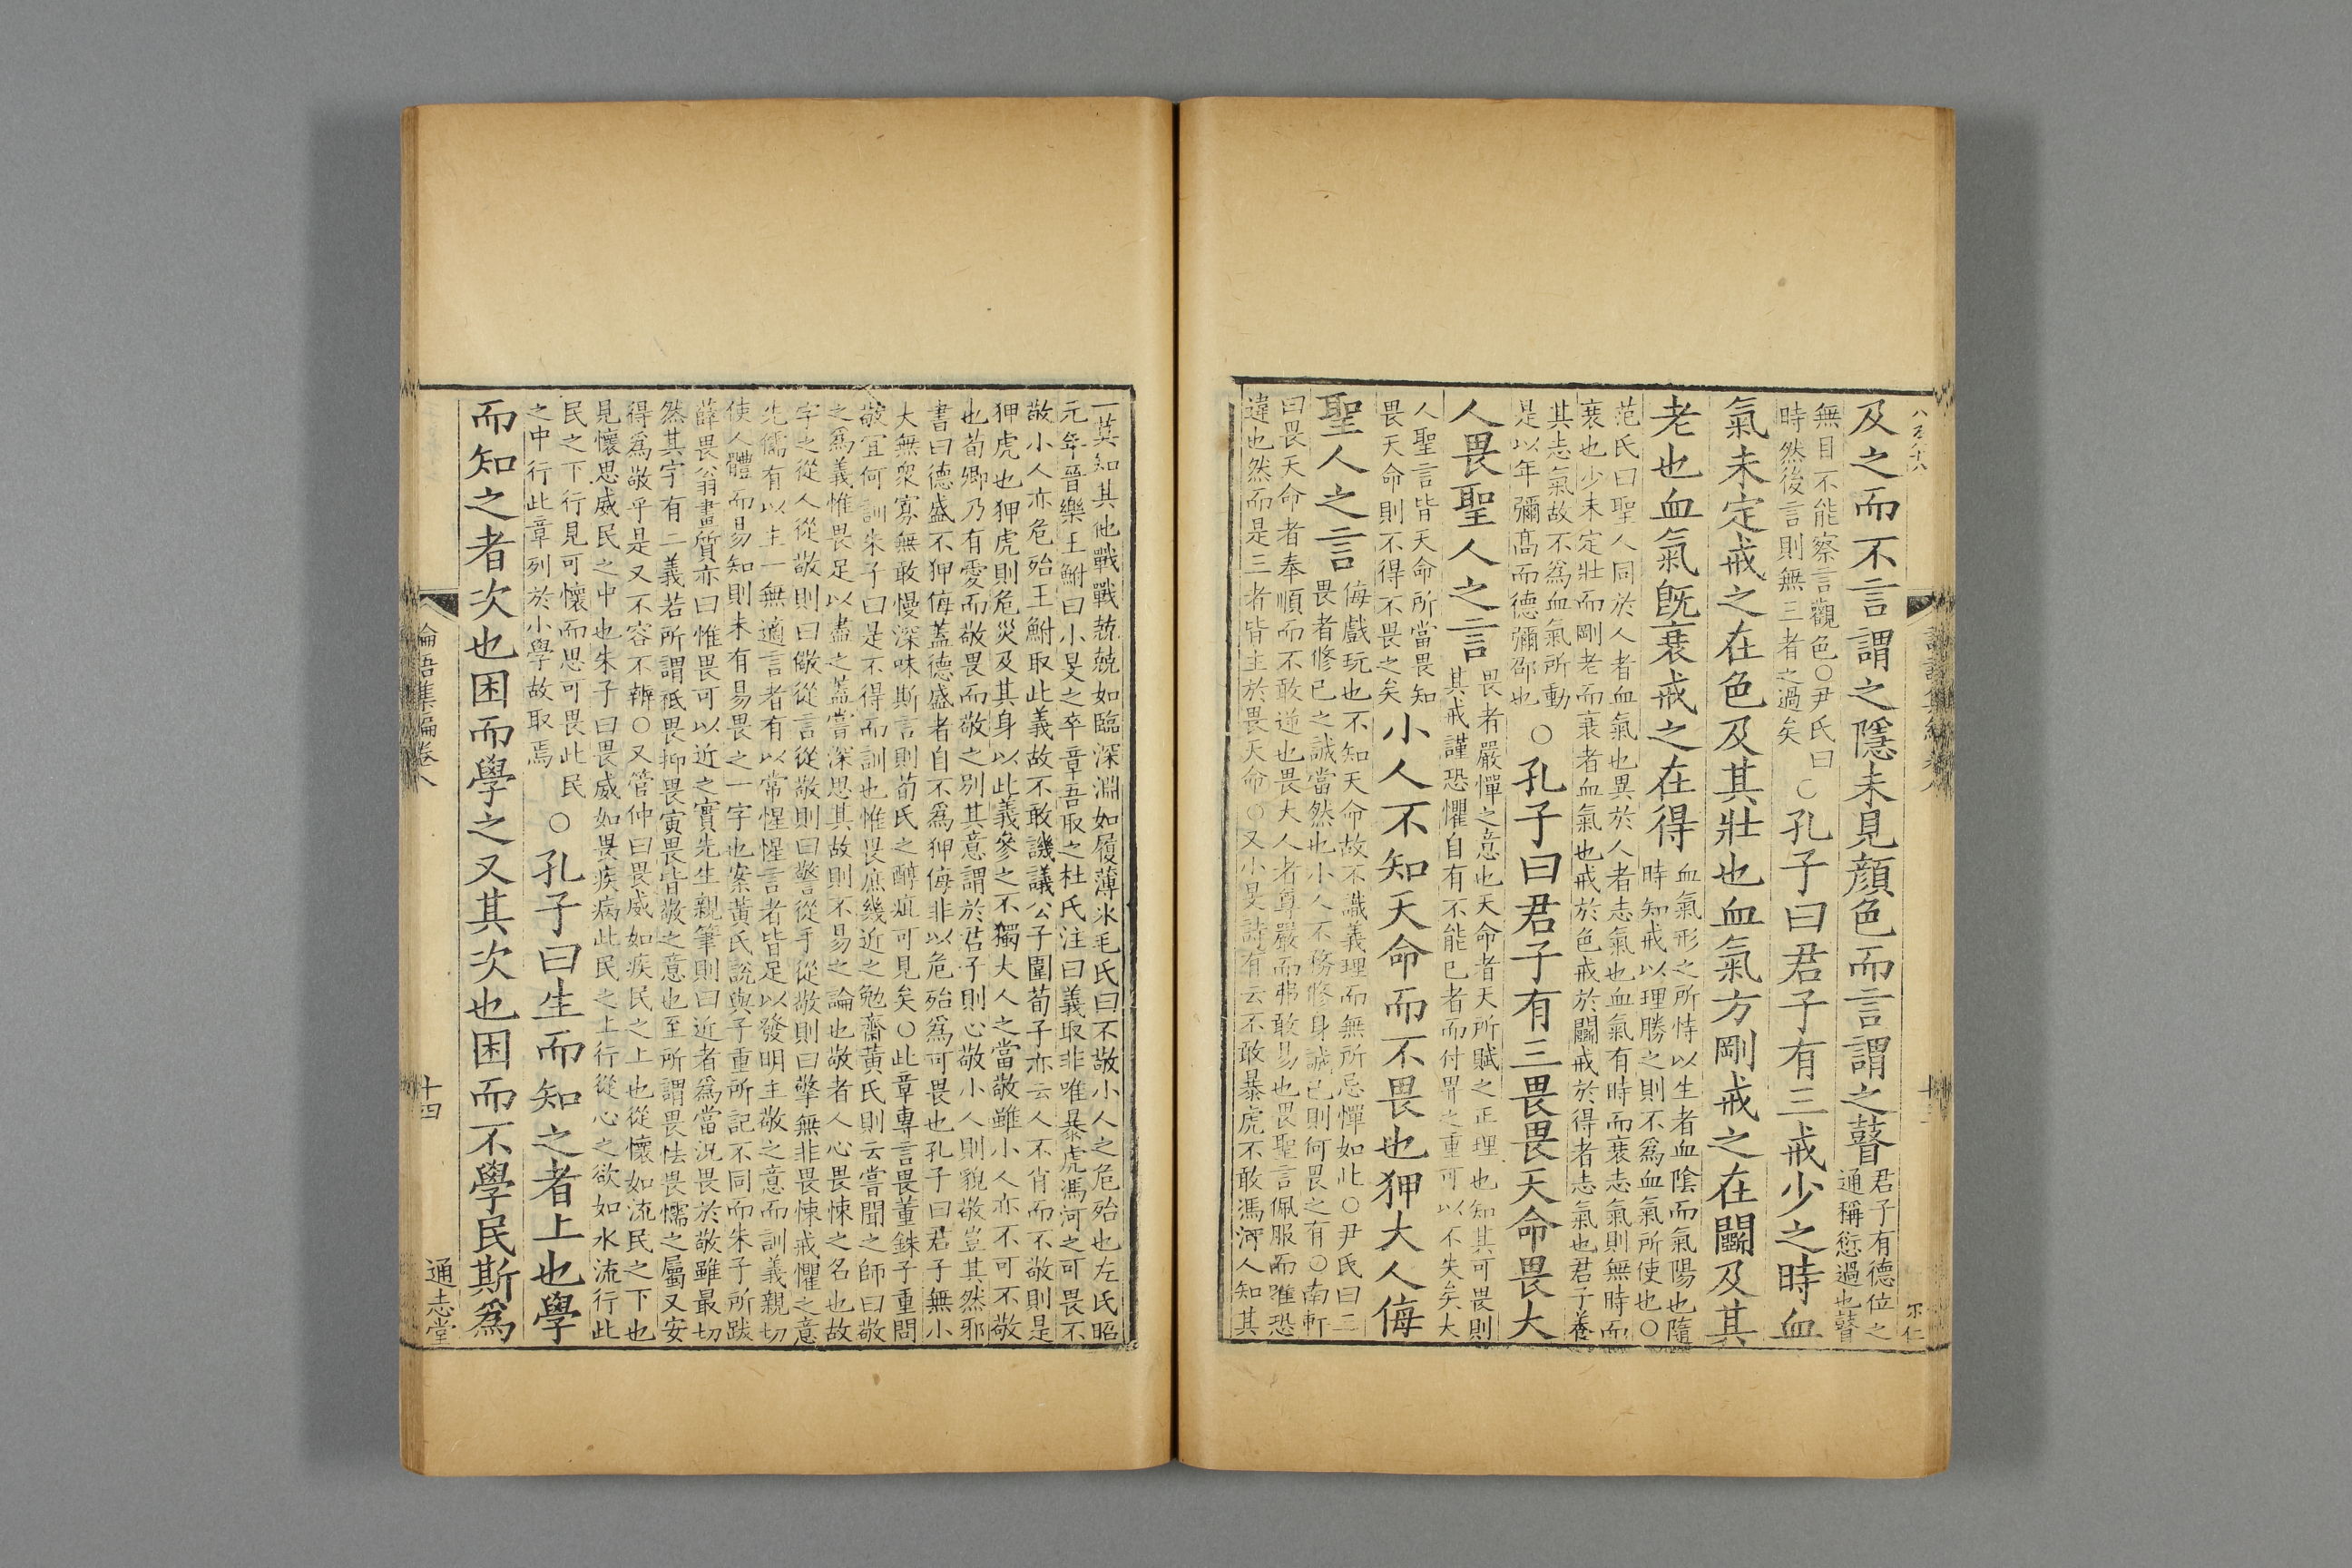 及之而不言謂之隱未見顔色而言謂之瞽
君子有德位之
通稱愆過也瞽
無目不能察言觀色○尹氏曰
時然後言則無三者之過矣
○孔子曰君子有三戒少之時血
氣未定戒之在色及其壯也血氣方剛戒之在鬭及其
老也血氣旣衰戒之在得
血氣形之所恃以生者血陰而氣陽也隨
時知戒以理勝之則不爲血氣所使也○
范氏曰聖人同於人者血氣也異於人者志氣也血氣有時而衰志氣則無時而
衰也少未定壯而剛老而衰者血氣也戒於色戒於鬭戒於得者志氣也君子養
其志氣故不爲血氣所動
是以年彌髙而德彌邵也
○孔子曰君子有三畏畏天命畏大
人畏聖人之言
畏者嚴憚之意也天命者天所賦之正理也知其可畏則
其戒謹恐懼自有不能已者而付畀之重可以不失矣大
人聖言皆天命所當畏知
畏天命則不得不畏之矣
小人不知天命而不畏也狎大人侮
聖人之言
侮戲玩也不知天命故不識義理而無所忌憚如此○尹氏曰三
畏者修己之誠當然也小人不務修身誠己則何畏之有○南軒
曰畏天命者奉順而不敢逆也畏大人者尊嚴而弗敢易也畏聖言佩服而踵恐
違也然而是三者皆主於畏天命○又小旻詩有云不敢暴虎不敢馮河人知其
一莫知其他戰戰兢兢如臨深淵如履薄冰毛氏曰不敬小人之危殆也左氏昭
元年晉樂王鮒曰小旻之卒章吾取之杜氏注曰義取非唯暴虎馮河之可畏不
敬小人亦危殆王鮒取此義故不敢譏議公子圍荀子亦云人不肖而不敬則是
狎虎也狎虎則危災及其身以此義參之不獨大人之當敬雖小人亦不可不敬
也荀卿乃有愛而敬畏而敬之别其意謂於君子則心敬小人則貌敬豈其然邪
書曰德盛不狎侮蓋德盛者自不爲狎侮非以危殆爲可畏也孔子曰君子無小
大無衆寡無敢慢深味斯言則荀氏之醇疵可見矣○此章專言畏董銖子重問
敬宜何訓朱子曰是不得而訓也惟畏庶幾近之勉齋黄氏則云嘗聞之師曰敬
之爲義惟畏足以盡之蓋嘗深思其故則不易之論也敬者人心畏悚之名也故
字之從人從敬則曰儆從言從敬則曰警從手從敬則曰擎無非畏悚戒懼之意
先儒有以主一無適言者有以常惺惺言者皆足以發明主敬之意而訓義親切
使人體而易知則未有易畏之一字也案黄氏說與子重所記不同而朱子所跋
薛畏翁畫質亦曰惟畏可以近之實先生親筆則曰近者爲當況畏於敬雖最切
然其字有二義若所謂祗畏抑畏寅畏皆敬之意也至所謂畏怯畏懦之屬又安
得爲敬乎是又不容不辨○又管仲曰畏威如疾民之上也從懷如流民之下也
見懷思威民之中也朱子曰畏威如畏疾病此民之上行從心之欲如水流行此
民之下行見可懷而思可畏此民
之中行此章列於小學故取焉
○孔子曰生而知之者上也學
而知之者次也困而學之又其次也困而不學民斯爲
論語集編卷八
十四
通志堂